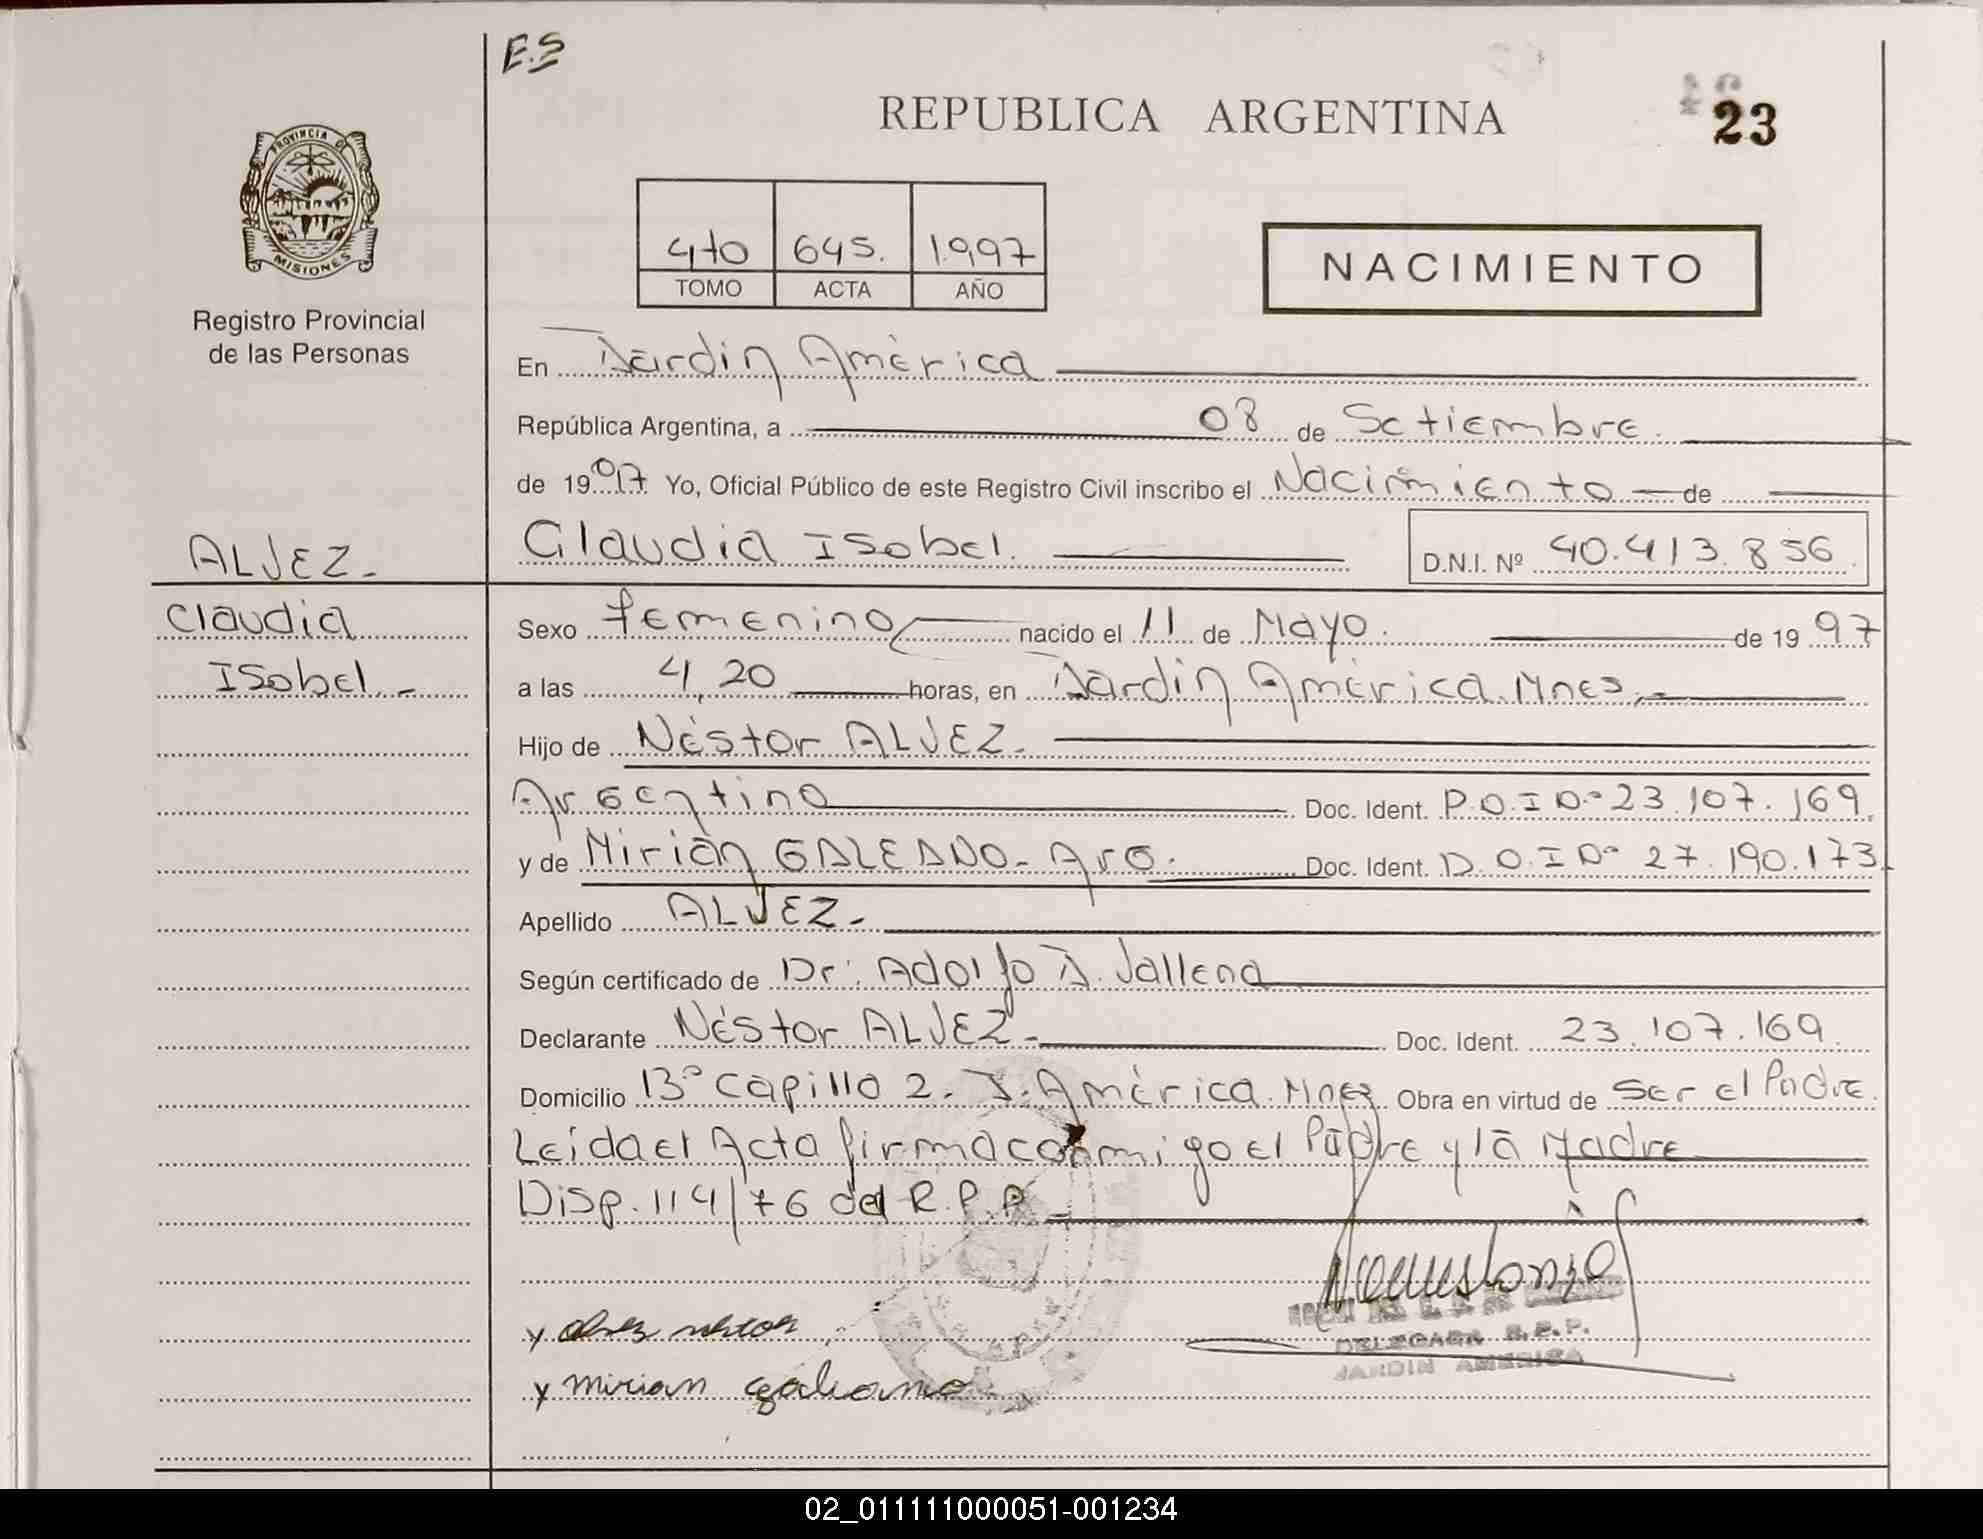 E.S
REPUBLICA ARGENTINA
23
PROVINCIA DE
MISIONES
Registro Provincial
de las Personas
4to 645. 1.997
TOMO ACTA AÑO
NACIMIENTO
En Jardín América
República Argentina, a 08 de Setiembre.
de 1997 Yo, Oficial Público de este Registro Civil inscribo el Nacimiento de
ALVEZ.-
Claudia Isabel. D.N.I. Nº 40.413.856
Claudia
Isabel.-
Sexo femenino nacido el 11 de Mayo. de 1997
a las 4,20 horas, en Jardín América. Mnes.-
Hijo de Néstor ALVEZ.
Argentino Doc. Ident. D.O.I Nº 23.107.169.
y de Mirian GALEANO- Arg. Doc. Ident. D.O.I Nº 27.190.173
Apellido ALVEZ.-
Según certificado de Dr. Adolfo J.
Declarante Néstor ALVEZ.- Doc. Ident. 23.107.169.
Domicilio Bº Capillo 2. J. América. Mnes Obra en virtud de ser el Padre.
Leída el Acta firma conmigo el Padre y la Madre
Disp. 114/76 del R.P.P.
DELEGADA R.P.P.
JARDIN AMERICA
y Alvez nestor
y mirian galeano
02_011111000051-001234